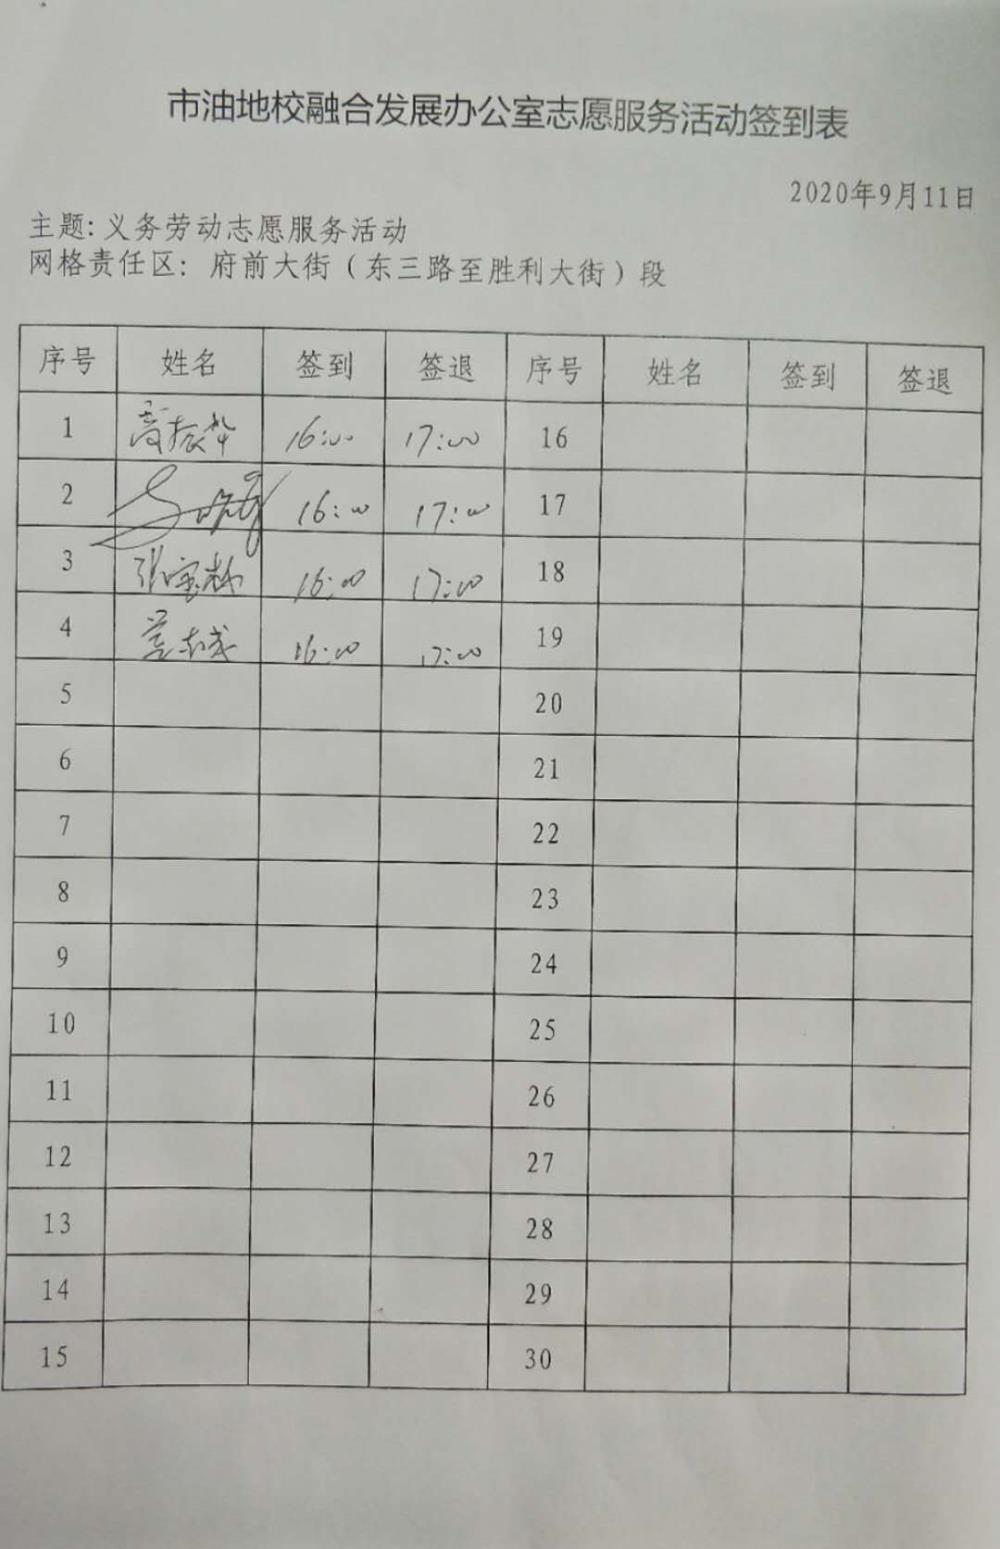 市油地校融合发展办公室志愿服务活动签到表
2020年9月11日
主题:义务劳动志愿服务活动
网格责任区: 府前大街(东三路至胜利大街)段
序号 姓名 签到 签退 序号 姓名 签到 签退
1 16:00 17:00 16
2 16:00 17:00 17
3 张宝林 16:00 17:00 18
4 16:00 17:00 19
5 20
6 21
7 22
8 23
9 24
10 25
11 26
12 27
13 28
14 29
15 30